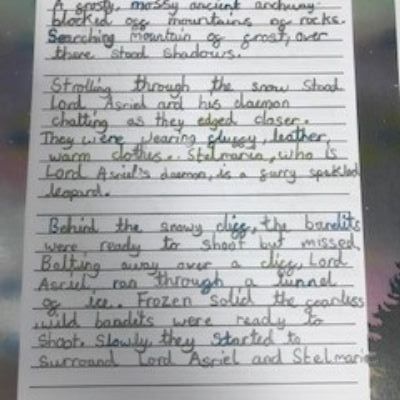 A frosty, mossy ancient archway
blocked off mountains of rocks.
Searching mountain of frost, over
there stood shadows.
Strolling through the snow stood
Lord Asriel and his daemon
chatting as they edged closer.
They were wearing fluffy, leather,
warm clothes. Stelmaria, who is
Lord Asriel's daemon, is a furry speckled
leopard.
Behind the snowy cliff, the bandits
were ready to shoot but missed.
Bolting away over a cliff, Lord
Asriel, ran through a tunnel
of ice. Frozen solid the fearless
wild bandits were ready to
shoot. Slowly, they started to
Surround Lord Asriel and Stelmaria